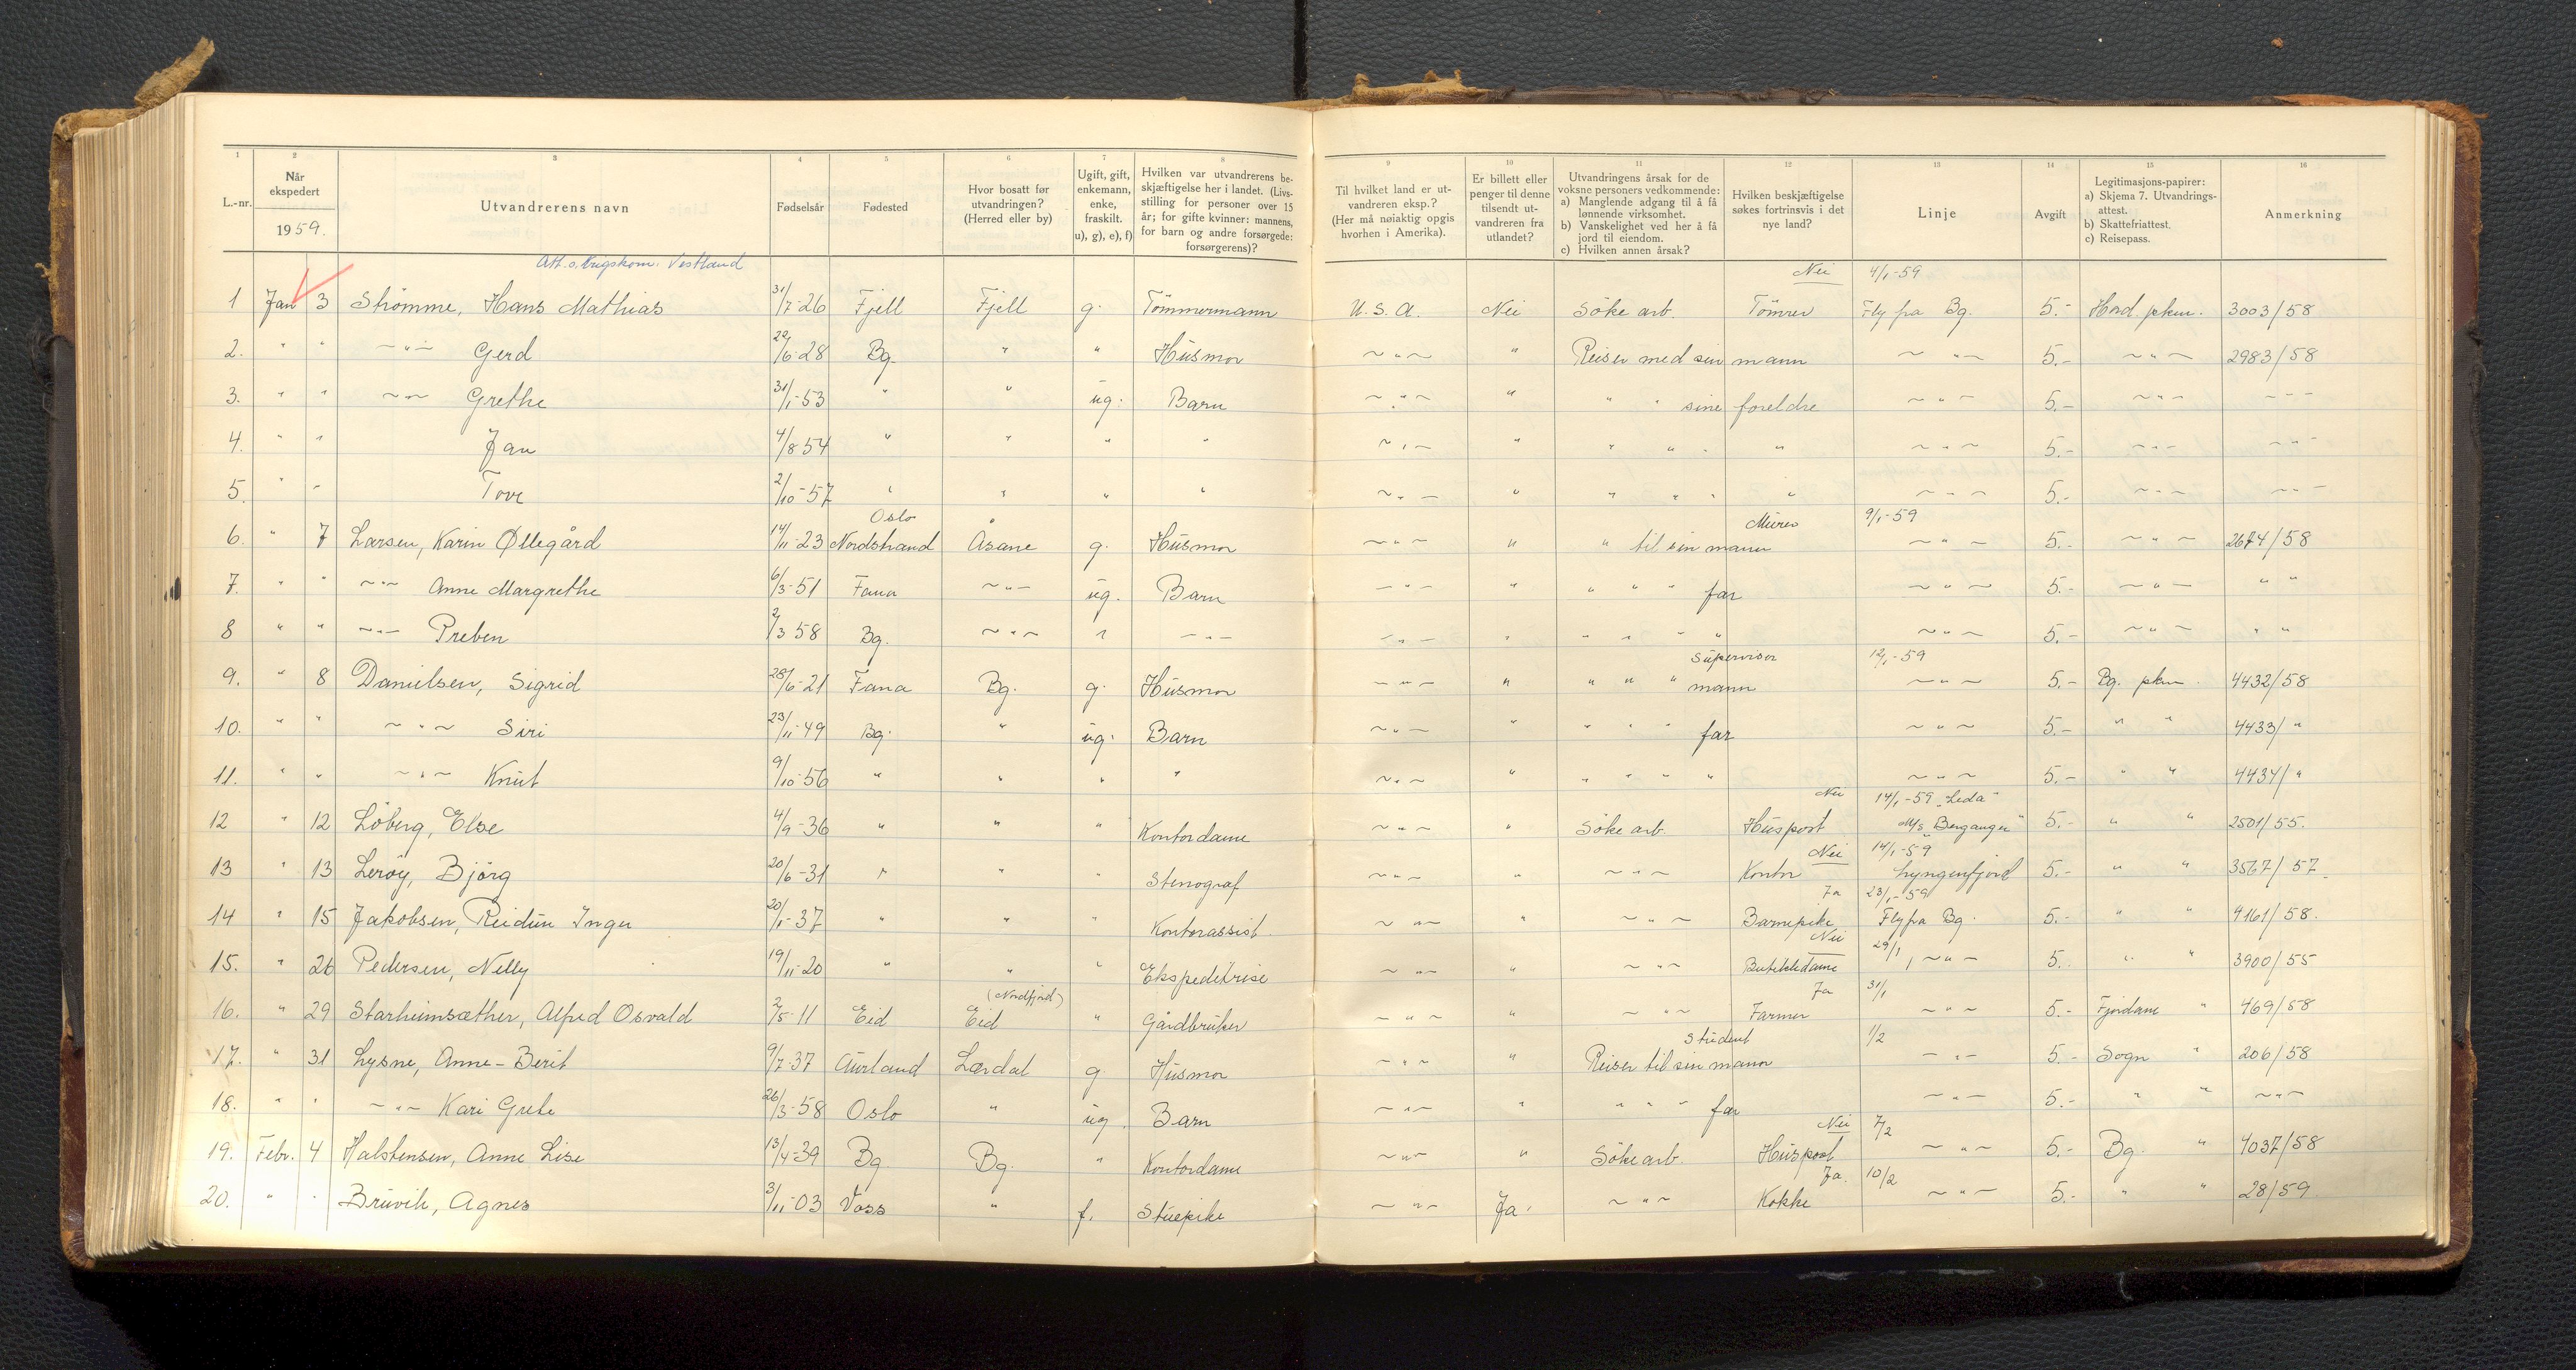 1 2 3 4 5 6 7 8 9 10 11 12 13 14 15 16
L.-nr. | Når ekspedert 1959. | Utvandrerens navn | Fødselsår | Fødested | Hvor bosatt før utvandringen? (Herred eller by) | Ugift, gift, enkemann, enke, fraskilt. u), g), e), f) | Hvilken var utvandrerens beskjæftigelse her i landet. (Livsstilling for personer over 15 år; for gifte kvinner: mannens, for barn og andre forsørgede: forsørgerens)? | Til hvilket land er utvandreren eksp.? (Her må nøiaktig opgis hvorhen i Amerika). | Er billett eller penger til denne tilsendt utvandreren fra utlandet? | Utvandringens årsak for de voksne personers vedkommende: a) Manglende adgang til å få lønnende virksomhet. b) Vanskelighet ved her å få jord til eiendom. c) Hvilken annen årsak? | Hvilken beskjæftigelse søkes fortrinsvis i det nye land? | Linje | Avgift | Legitimasjons-papirer: a) Skjema 7. Utvandringsattest. b) Skattefriattest. c) Reisepass. | Anmerkning
Att. s. Krigskom. Vestland Nei 4/1-59
1 Jan 3 Strømme, Hans Mathias 31/7-26 Fjell Fjell g. Tømmermann U.S.A. Nei Søke arb. Tømrer Fly fra Bg. 5.- Hord. pkm. 3003/58
2. " " ~"~ Gerd 22/6-28 Bg. " " Husmor ~"~ " Reiser med sin mann ~"~ 5.- ~"~ 2983/58
3. " " ~"~ Grethe 31/1-53 " " ug. Barn ~"~ " " " sine foreldre ~"~ 5.- ~"~ ~"~
4. " " Jan 4/8 54 " " " " ~"~ " " " " " ~"~ 5.- ~"~ ~"~
5. " " Tove 2/10-57 " " " " ~"~ " " " " " ~"~ 5.- ~"~ ~"~
Oslo Murer 9/1-59
6. " 7 Larsen, Karin Øllegård 14/11-23 Nordstrand Åsane g. Husmor ~"~ " " til sin mann ~"~ 5.- ~"~ 2674/58
7. " " ~"~ Anne Margrethe 6/3-51 Fana ~"~ ug. Barn ~"~ " " " " far ~"~ 5.- ~"~ " "
8 " " ~"~ Preben 2/3 58 Bg. ~"~ " ~"~ ~"~ " " " " " ~"~ 5.- ~"~ " "
Supervisor 12/1-59
9. " 8 Danielsen, Sigrid 28/6-21 Fana Bg. g. Husmor ~"~ " " " " mann ~"~ 5.- Bg. pkm. 4432/58
10. " " ~"~ Siri 23/11-49 Bg. " ug. Barn ~"~ " " " " far ~"~ 5.- " " 4433/"
11. " " ~"~ Knut 9/10-56 " " " " ~"~ " " " " " ~"~ 5.- " " 4434/"
Nei 14/1-59 "Leda"
12 " 12 Löberg, Else 4/9-36 " " " Kontordame ~"~ " Søke arb. Huspost M/s "Berganger" 5.- " " 2501/55.
Nei 14/1-59
13 " 13 Lerøy, Bjørg 20/6-31 " " " Stenograf ~"~ " ~"~ Kontor Lyngenfjord 5.- " " 3567/57.
Ja 23/1-59
14 " 15 Jakobsen, Reidun Inger 20/1-37 " " " Kontorassist. ~"~ " ~"~ Barnepike Fly fra Bg. 5.- " " 4161/58.
Nei 29/1
15. " 26 Pedersen, Nelly 19/11-20 " " " Ekspeditrise ~"~ " ~"~ Butikkdame ~"~ 5. " " 3900/55
(Nordfjord) Ja 31/1
16. " 29 Starheimsæther, Alfred Osvald 2/5-11 Eid Eid " Gårdbruker ~"~ " ~"~ Farmer ~"~ 5.- Fjordane " 469/58
Student 1/2
17. " 31 Lysne, Anne-Berit 9/7-37 Aurland Lærdal g Husmor ~"~ " Reiser til sin mann ~"~ 5.- Sogn " 206/58
18. " " ~"~ Kari Grete 26/3-58 Oslo " ug. Barn ~"~ " " " " far ~"~ 5.- " " ~"~
Nei 7/2
19. Febr. 4 Halstensen, Anne Lise 13/4-39 Bg. Bg. " Kontordame ~"~ " Søke arb. Huspost ~"~ 5.- Bg. " 4037/58
Ja. 10/2
20. " " Bruvik, Agnes 3/11-03 Voss " f. Stuepike ~"~ Ja. ~"~ Kokke ~"~ 5.- " " 28/59